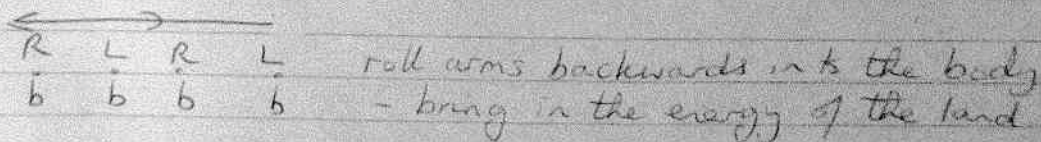 R L R L roll arms backwards into the body
b b b b - bring in the energy of the land